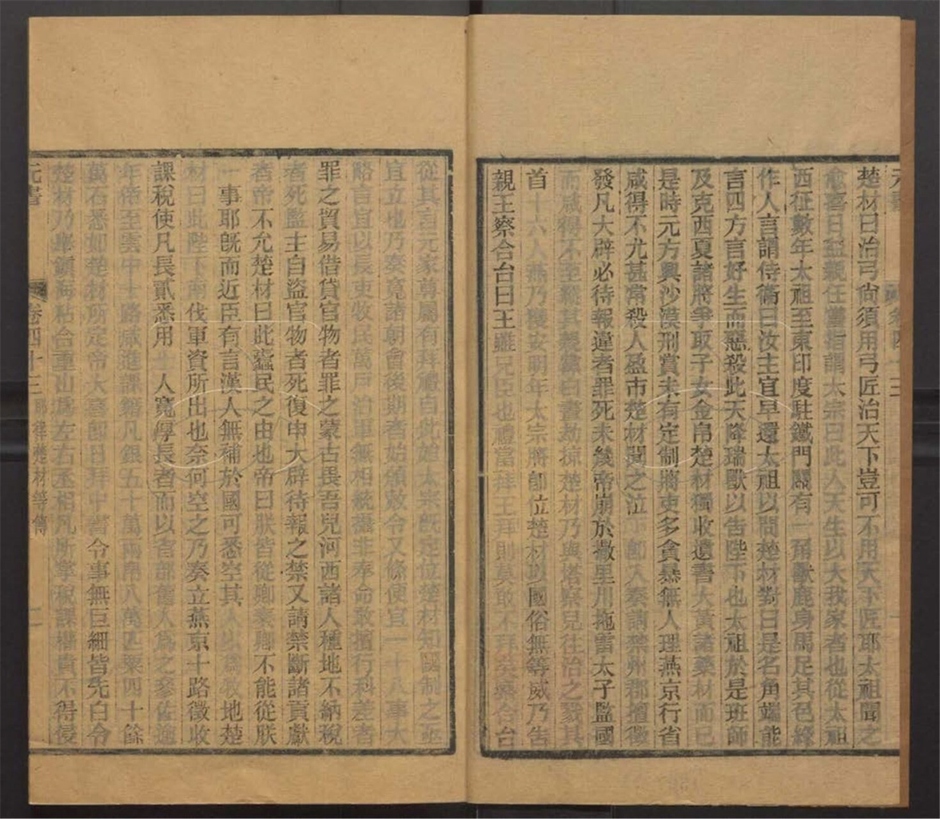 楚材曰治弓尙須用弓匠治天下豈可不用天下匠耶太祖聞之
愈喜日益親任嘗指謂太宗曰此人天生以大我家者也從太祖
西征數年太祖至東印度駐鐵門關有一角獸鹿身馬尾其色綠
作人言謂侍衞曰汝主宜早還太祖以問楚材對曰是名角端能
言四方言好生而惡殺此天降瑞獸以告陛下也太祖於是班師
及克西夏諸將爭取子女金帛楚材獨收遺書大黃諸藥材而已
是時元方興沙漠刑賞未有定制將吏多貪暴無人理燕京行省
咸得不尤甚常殺人盈市楚材聞之泣 卽入奏請禁州郡擅徵
發凡大辟必待報違者罪死未幾帝崩於撒里川拖雷太子監國
而咸得不至縱其親黨白晝劫掠楚材乃與塔察兒往治之戮其
首 十六人燕乃獲安明年太宗將卽位楚材以國俗無等威乃告
親王察合台曰王雖兄臣也禮當拜王拜則莫敢不拜矣察合台
從其言元家尊屬有拜禮自此始太宗既定位楚材知國制之
宜立也乃奏寬諸朝會後期者始頒赦令又條便宜一十八事大
略言宜以長吏牧民萬戶治軍無相統攝非奉命敢擅行科差者
罪之貿易借貸官物者罪之蒙古畏吾兒河西諸人種地不納稅
者死監主自盜官物者死復申大辟待報之禁又請禁斷諸貢獻
者帝不允楚材曰此蠹民之由也帝曰朕皆從卿奏卿不能從朕
一事耶既而近臣有言漢人無補於國可悉空其人以爲牧地楚
材曰此陛下南 伐軍資所出也奈何空之乃奏立燕京十路徵收
課稅使凡長貳悉用 人寬厚長者而以吉部舊人爲之參佐逾
年帝至雲中十路咸進課籍凡銀五十萬兩帛八萬匹粟四十餘
萬石悉如楚材所定帝大喜卽日拜中書 令事無巨細皆先白令
楚材乃舉鎭海粘合重山爲左右丞相凡所掌稅課權貴不得侵
元書
卷四十三
耶律楚材等傳